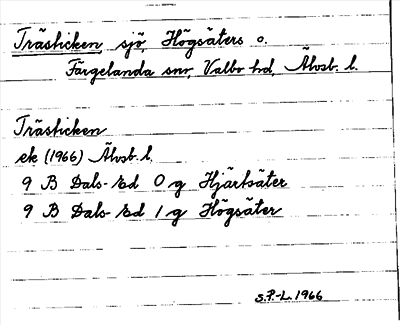 Trästicken, sjö, Högsäters o.
Färgelanda snr, Valbo hd, Älvsb. l.
Trästicken
ek (1966) Älvsb. l.
9 B Dals-Ed 0 g Hjärtsäter
9 B Dals-Ed 1 g Högsäter
S.P.-L. 1966